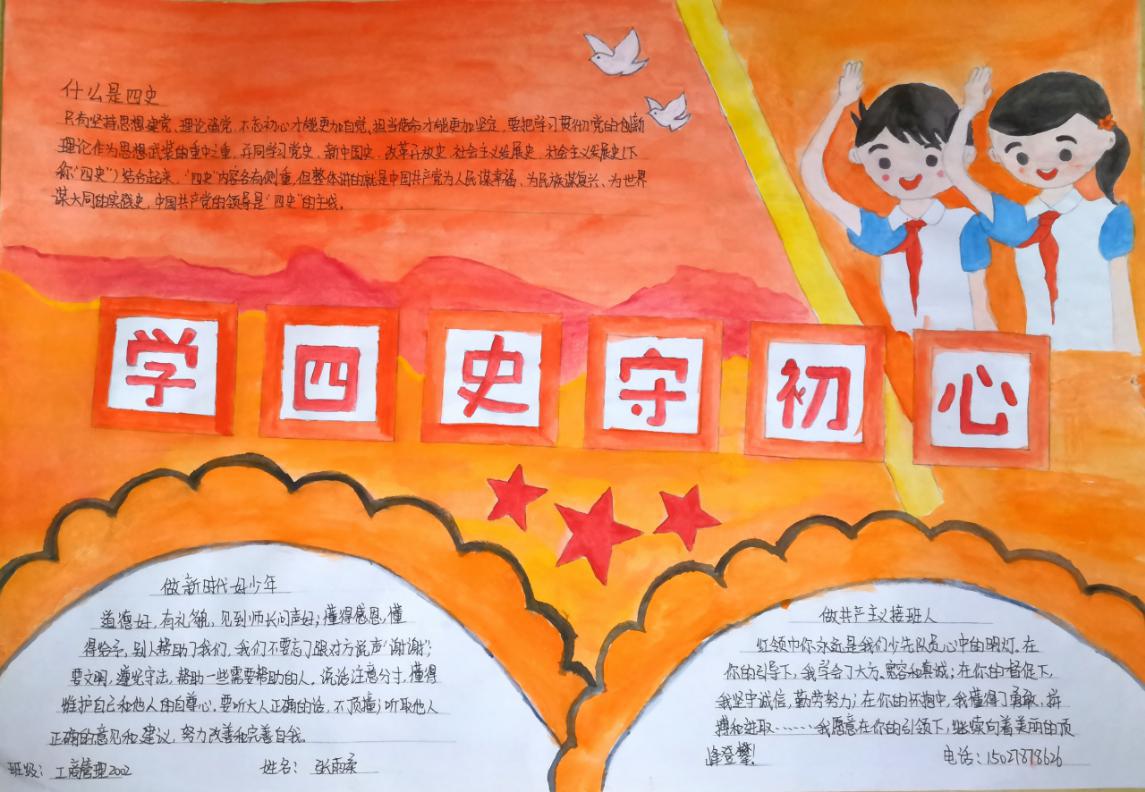 什么是四史
只有坚持思想建党、理论强党，不忘初心才能更加自觉，担当使命才能更加坚定，要把学习贯彻党的创新
理论作为思想武装的重中之重，并同学习党史、新中国史、改革开放史、社会主义发展史，社会主义发展史（下
称“四史”）结合起来，“四史”内容各有侧重，但整体讲的就是中国共产党为人民谋幸福、为民族谋复兴、为世界
谋大同的实践史，中国共产党的领导是“四史”的主线。
学四史守初心
做新时代好少年
道德好，有礼貌，见到师长问声好；懂得感恩，懂
得给予，别人帮助了我们，我们不要忘了跟对方说声“谢谢”；
要文明，遵纪守法，帮助一些需要帮助的人。说话注意分寸，懂得
维护自己和他人的自尊心。要听大人正确的话，不顶撞；听取他人
正确的意见和建议，努力改善和完善自我。
班级：工商管理2002 姓名：张雨柔
做共产主义接班人
红领巾你永远是我们少先队员心中的明灯。在
你的引导下，我学会了大方、宽容和真诚；在你的督促下，
我坚守诚信，勤劳努力；在你的怀抱中，我懂得了勇敢、拼
搏和进取………我愿意在你的引领下，继续向着美丽的顶
峰登攀！
电话：15021878626